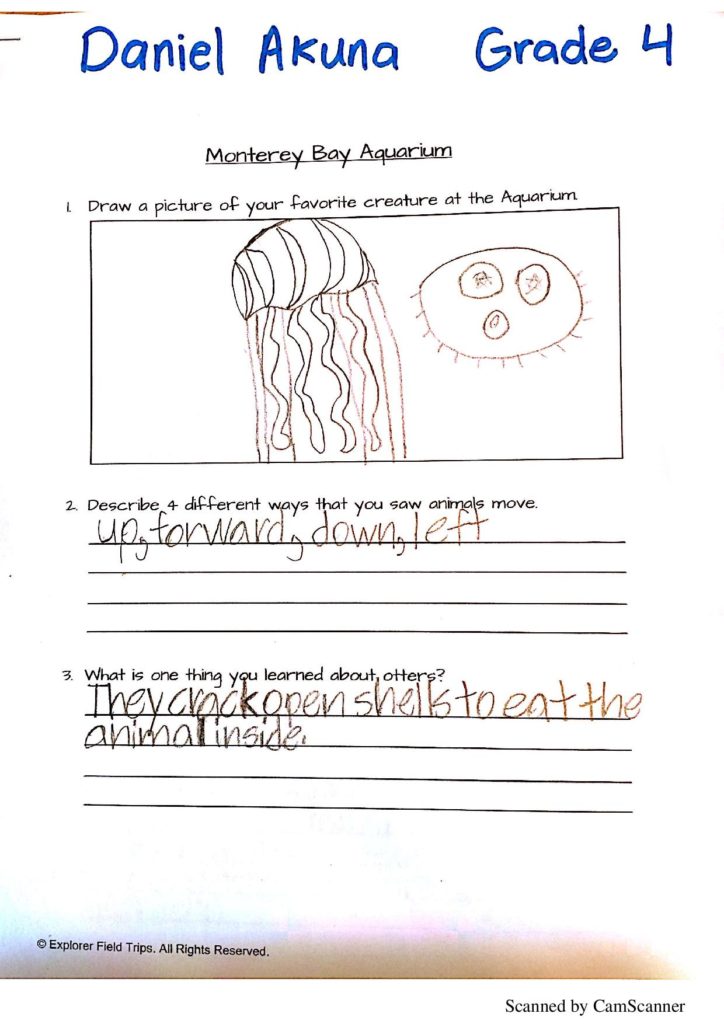 Daniel Akuna Grade 4
Monterey Bay Aquarium
1. Draw a picture of your favorite creature at the Aquarium.
2. Describe 4 different ways that you saw animals move.
up, forward, down, left
3. What is one thing you learned about otters?
They crack open shells to eat the
animal inside.
© Explorer Field Trips. All Rights Reserved.
Scanned by CamScanner